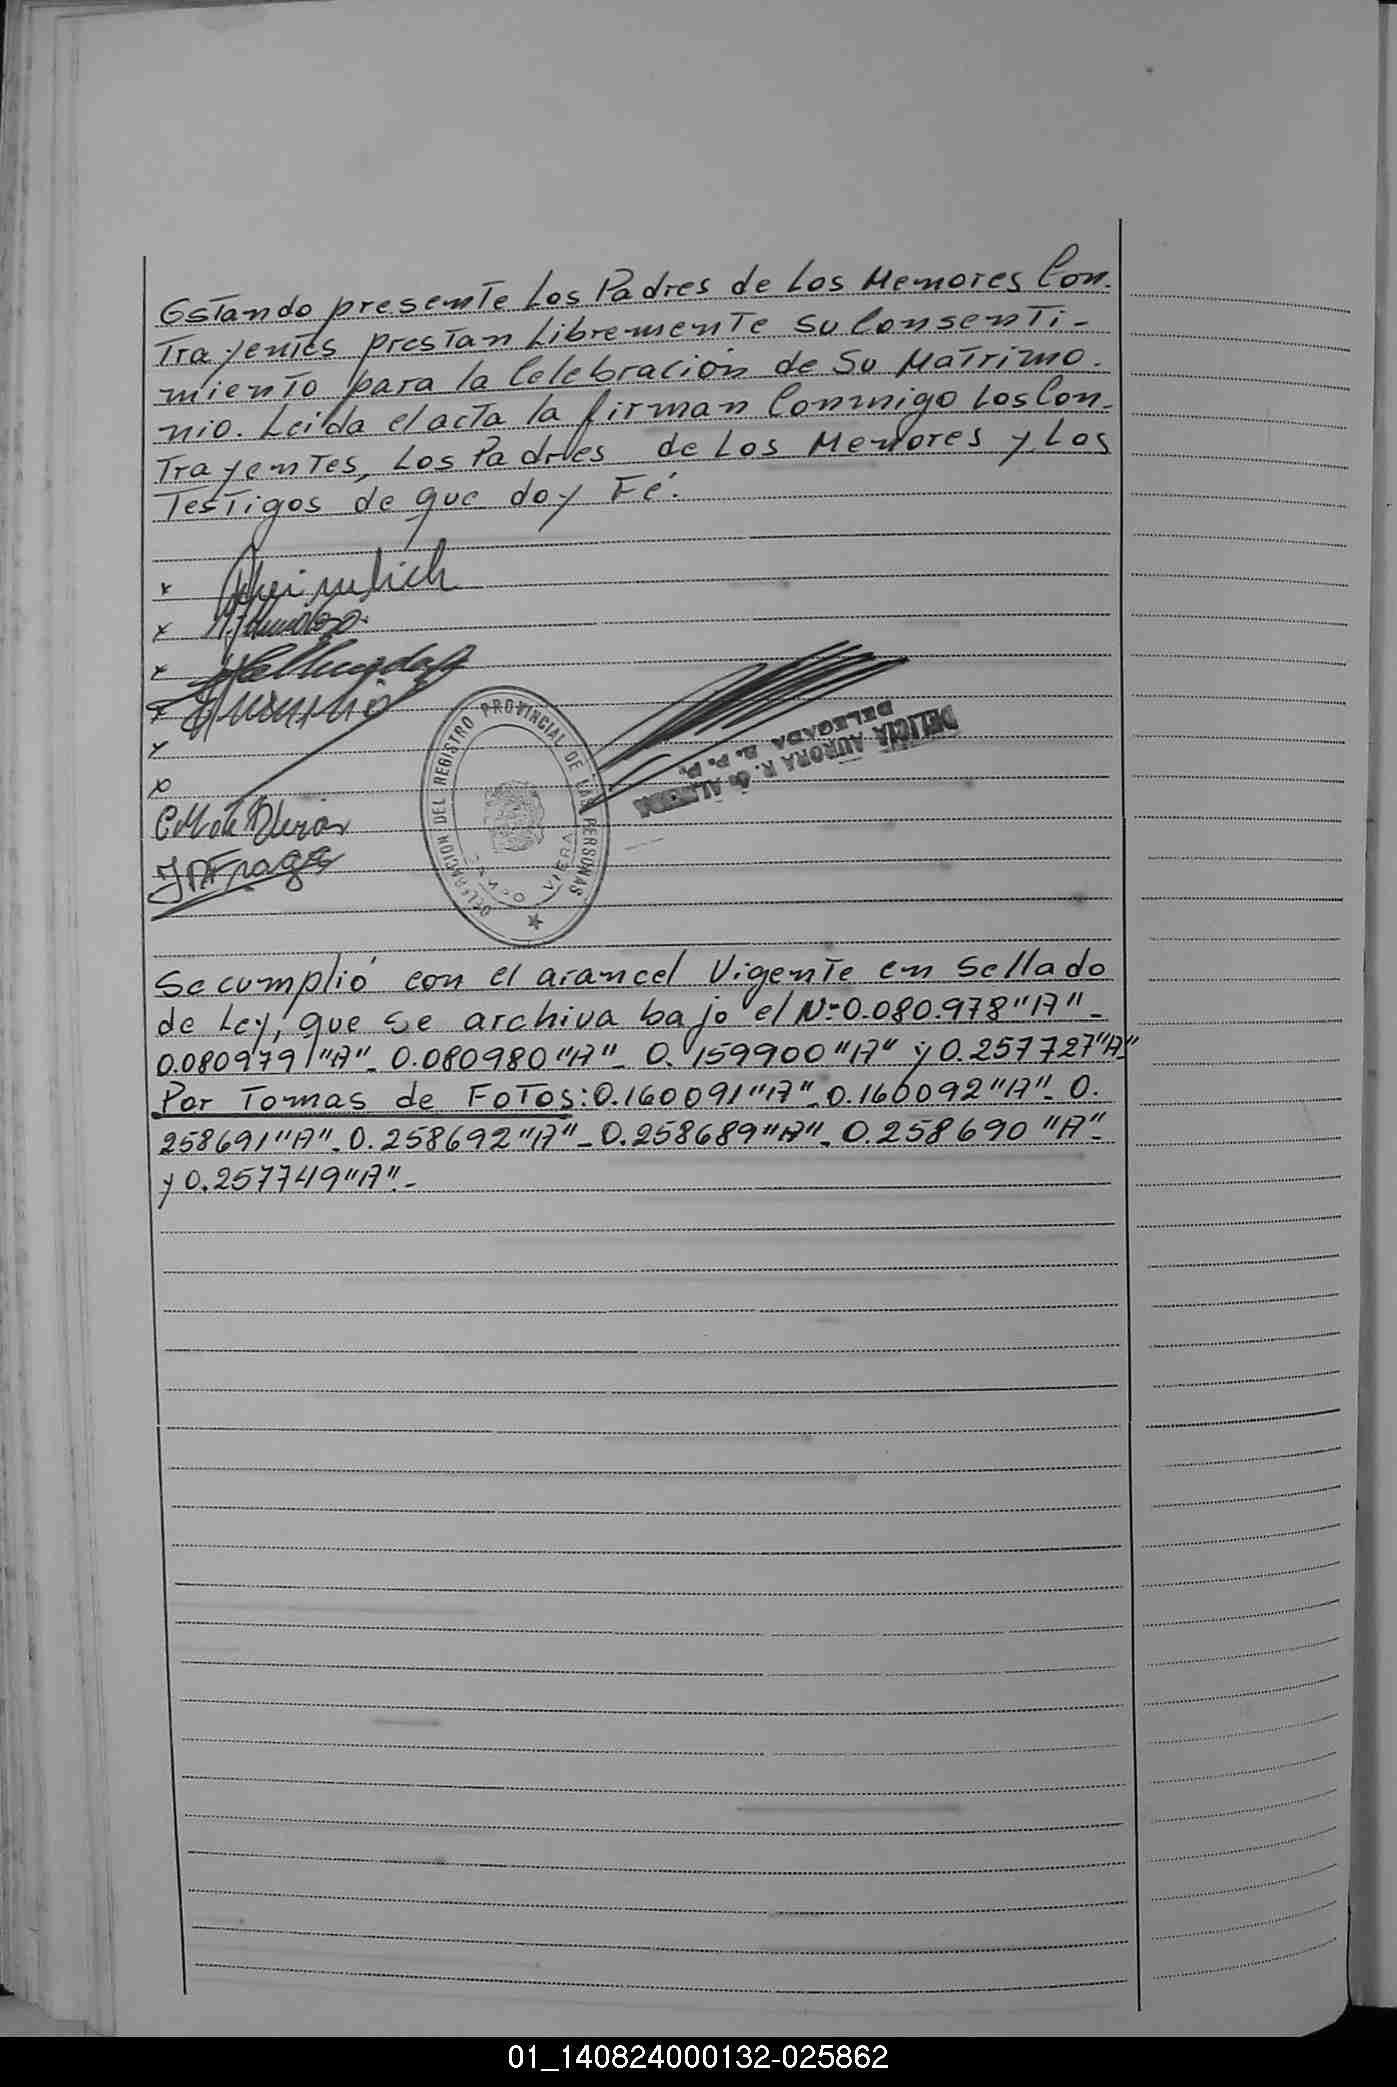 Estando presente Los Padres de Los Menores Con-
Trayentes prestan Libremente Su Consenti-
miento para la Celebración de Su Matrimo-
nio. Leida el acta la firman Conmigo Los Con-
Trayentes, Los Padres de Los Menores y Los
Testigos de que doy Fé.
x
x
x
x
x
x
DELEGACION DEL REGISTRO PROVINCIAL DE LAS PERSONAS
CAMPO VIERA
DELICIA AURORA R. de ALMEDA
DELEGADA R. P. P.
Se cumplió con el arancel Vigente en Sellado
de Ley, que se archiva bajo el Nº 0.080.978 "A" -
0.080979 "A" - 0.080980 "A" - 0.159900 "A" y 0.257727 "A" -
Por Tomas de Fotos: 0.160091 "A" - 0.160092 "A" - 0.
258691 "A" - 0.258692 "A" - 0.258689 "A" - 0.258690 "A" -
y 0.257749 "A" . -
01_140824000132-025862